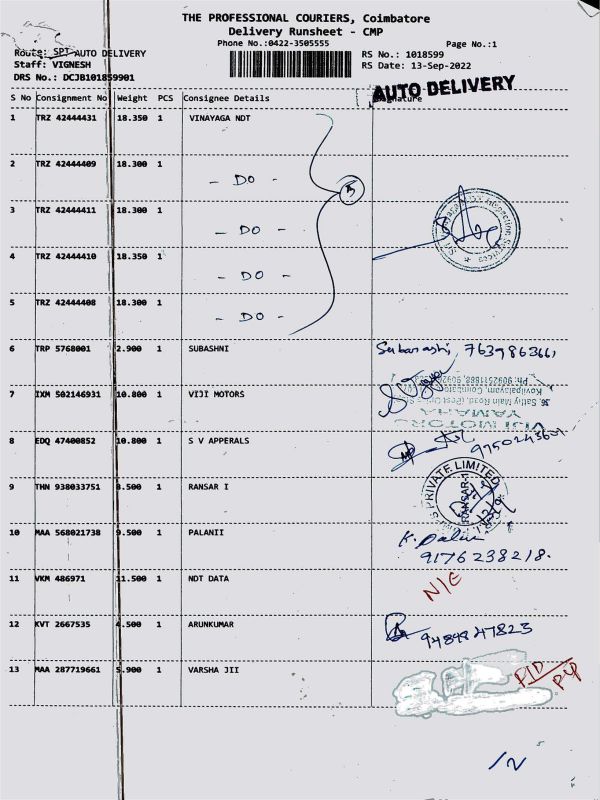 THE PROFESSIONAL COURIERS, Coimbatore
Delivery Runsheet - CMP
Phone No.:0422-3505555
Page No.:1
Route: SPT AUTO DELIVERY
RS No.: 1018599
Staff: VIGNESH
RS Date: 13-Sep-2022
DRS No.: DCJB101859901
AUTO DELIVERY
S No Consignment No Weight PCS Consignee Details Signature
1 TRZ 42444431 18.350 1 VINAYAGA NDT
2 TRZ 42444409 18.300 1 - DO -
5
3 TRZ 42444411 18.300 1 - DO -
4 TRZ 42444410 18.350 1 - DO -
5 TRZ 42444408 18.300 1 - DO -
6 TRP 5768001 2.900 1 SUBASHNI
7 IXM 502146931 10.800 1 VIJI MOTORS
VIJI MOTORS
YAMAHA
8 EDQ 47400852 10.800 1 S V APPERALS
9 THN 938033751 8.500 1 RANSAR I
PRIVATE LIMITED
RANSAR-1
10 MAA 568021738 9.500 1 PALANII
9176238218.
11 VKM 486971 11.500 1 NDT DATA
N/E
12 KVT 2667535 4.500 1 ARUNKUMAR
13 MAA 287719661 5.900 1 VARSHA JII